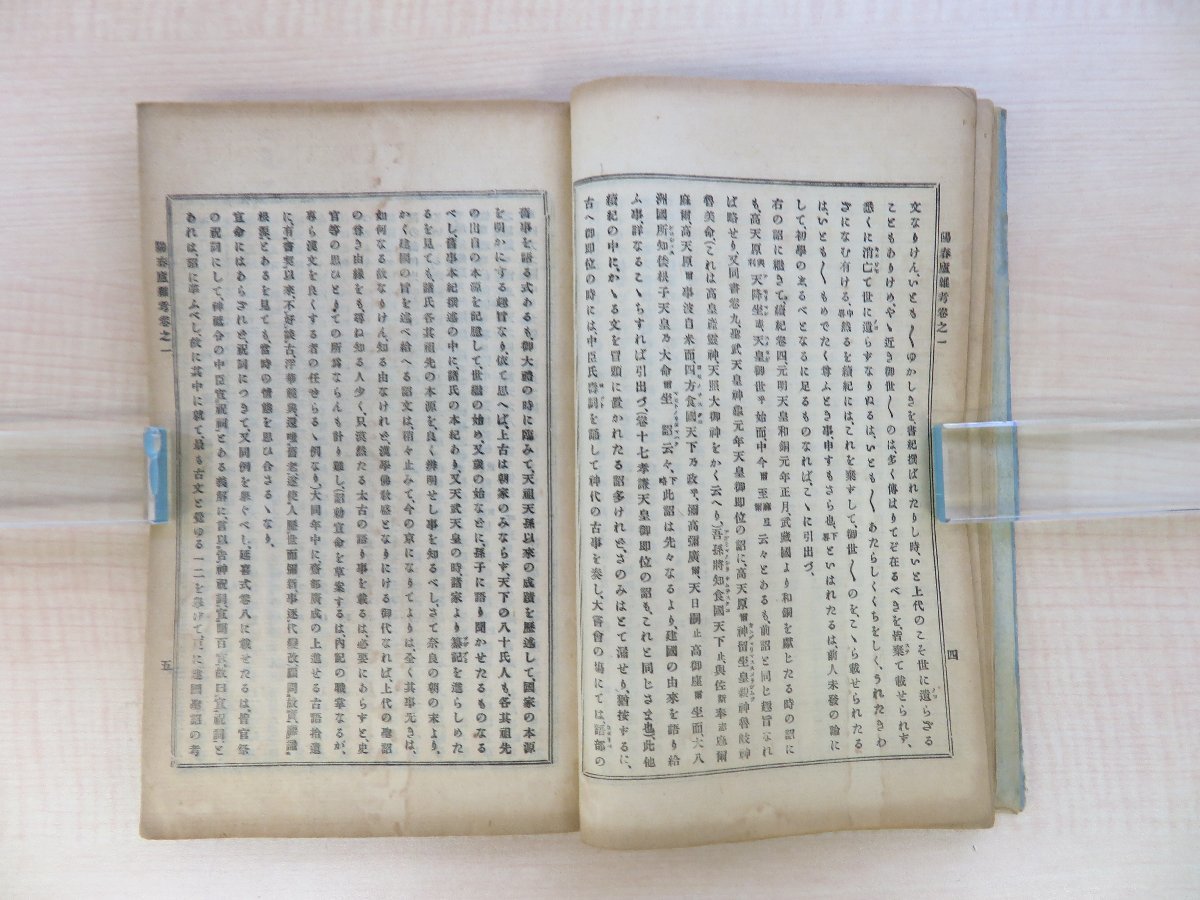 陽春廬雑考卷之一
文なりけん、いとも〱ゆかしきを書紀撰ばれたりし時、いと上代のこそ世に遺らざる
こともありけめ、やゝ近き御世〱のは多く傳はりてぞ在るべきを、皆棄て載せられず、
悉くに消亡て世に遺らずなりぬるは、いとも〱あたらしくくちをしく、うれたきわ
ざになむ有ける、中畧 然るを續紀にはこれを棄ずして、御世〱のを、こゝら載せられたる
は、いとも〱もめでたく尊ふとき事申すもさら也、下畧 といはれたるは、前人未發の論に
して、初學のよるべとなるに足るものなれば、こゝに引出づ、
右の詔に繼きて、續紀卷四、元明天皇和銅元年正月、武藏國より和銅を獻じたる時の詔に
も、高天原與利天降坐志、天皇御世乎始而中今爾至麻弖爾云々とあるも、前詔と同じ趣旨なれ
ば略せり、又同書卷九、聖武天皇神龜元年天皇御即位の詔に、高天原爾神留坐皇親神魯岐神
魯美命、(これは高皇產靈神、天照大御神をかく云へり、)吾孫將知食國天下止、與佐斯奉志麻爾
麻爾、高天原爾事波自米而四方食國天下乃政乎、彌高彌廣爾、天日嗣止高御座爾坐而、大八
洲國所知倭根子天皇乃大命爾坐詔云々、下略 此詔は先々なるより、建國の由來を語り給
ふ事、詳なるこゝちすれば引出づ、(卷十七孝謙天皇御即位の詔も、これと同じさま也、)此他
續紀の中に、かゝる文を冒頭に置かれたる詔多けれど、さのみはとて漏せり、猶按ずるに、
古へ御即位の時には、中臣氏壽詞を誦して神代の古事を奏し、大嘗會の塲にては、語部の
四
舊事を語る式あるも、御大禮の時に臨みて、天祖天孫以來の成蹟を歷述して、國家の本源
を明かにする趣旨なり、依て思へば、上古は朝家のみならず、天下の八十氏人も、各其祖先
の出自の本源を記臆して、世繼の始め、又歲の始などに、孫子に語り聞かせたるものなる
べし、舊事本紀撰述の中に、諸氏の本紀あり、又天武天皇の時諸家より纂記を進らしめた
るを見ても、諸氏各其祖先の本源を、良く辨明せし事を知るべし、さて奈良の朝の末より、
かく建國の旨を述べ給へる詔文は、稍々止みて、今の京になりてよりは、全く其事无きは、
如何なる故なりけん、知る由なけれど、漢學佛教盛となりにける御代なれば、上代の聖詔
の尊き由緣をも尋ね知る人少く、只漠然たる太古の語り事を載るは、必要にあらずと、史
官等の思ひとりての所爲ならんも計り難し、(詔勅宣命を草案するは、內記の職掌なるが、
專ら漢文を良くする者の任せらるゝ例なり、)大同年中に齋部廣成の上進せる古語拾遺
に、有書契以來、不好談古、浮華競興、還嗤舊老、遂使人歷世而彌新、事逐代變改、顧問故實、靡識
根源、とあるを見ても、當時の情態を思ひ合さるゝなり、
宣命にはあらざれど、祝詞につきて、又同例を擧ぐべし、延喜式卷八に載せたるは、皆官祭
の祝詞にして、神祇令の中臣宣祝詞、とある義解に、言以告神祝詞、宣聞百官、故曰宣祝詞、と
あれば、詔に準ふべし、故に其中に就て、最も古文と覺ゆる一二を擧げて、更に建國聖詔の考
陽春廬雜考卷之一
五